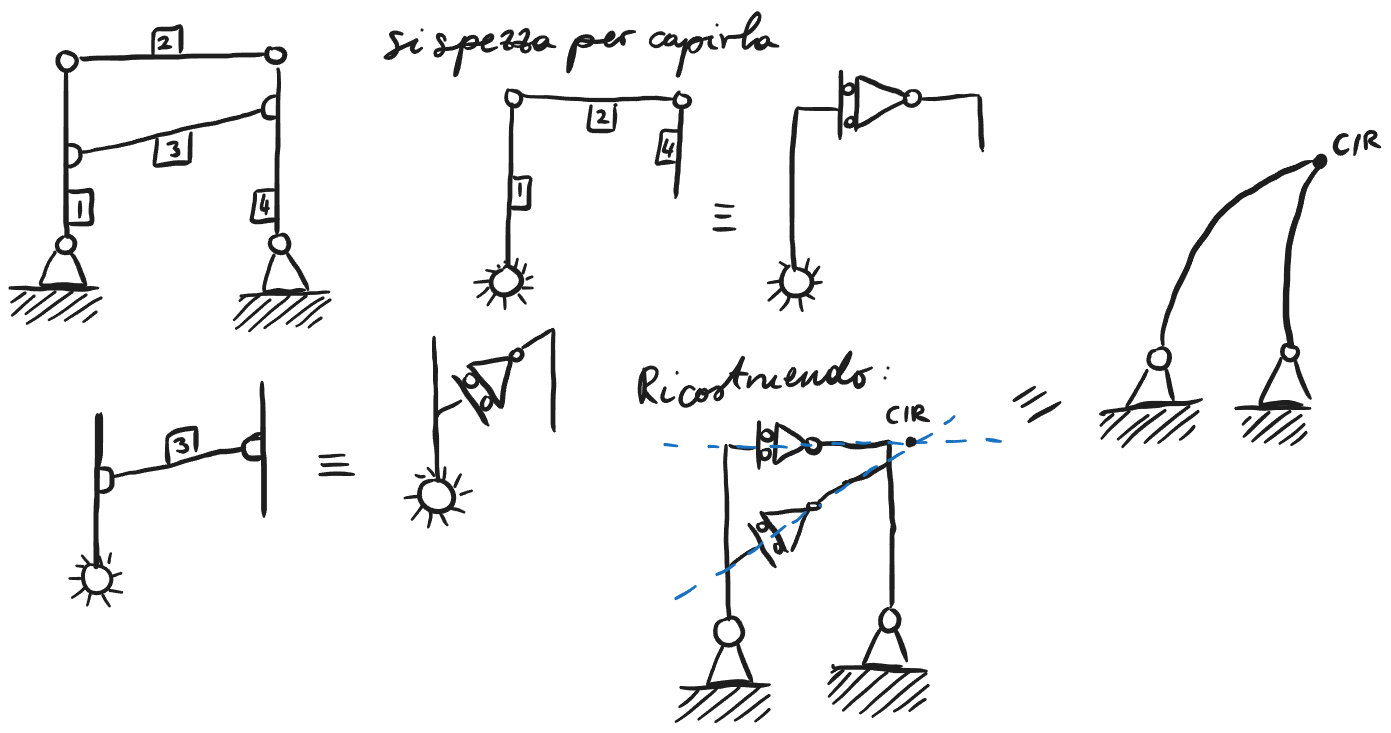 si spezza per capirla
2
3
1
4
2
4
1
CIR
3
Ricostruendo:
CIR